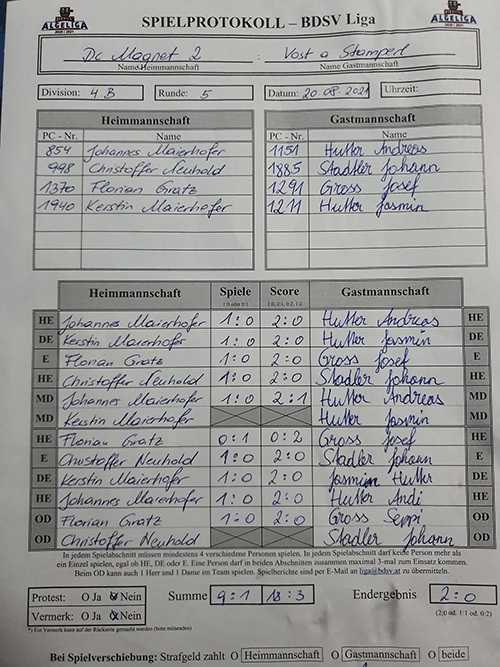 ALGELIGA
2020 / 2021
SPIELPROTOKOLL – BDSV Liga
ALGELIGA
2020 / 2021
Dc Magnet 2 : Vost a Stamperl
Name Heimmannschaft Name Gastmannschaft
Division: 4 B Runde: 5 Datum: 20.08.2021 Uhrzeit:
Heimmannschaft Gastmannschaft
PC - Nr. Name PC - Nr. Name
854 Johannes Maierhofer 1151 Hutter Andreas
998 Christoffer Neuhold 1885 Stadler Johann
1370 Florian Gratz 1291 Gross Josef
1940 Kerstin Maierhofer 1211 Hutter Jasmin
Heimmannschaft Spiele Score Gastmannschaft
1:0 oder 0:1 2:0, 2:1, 0:2, 1:2
HE Johannes Maierhofer 1:0 2:0 Hutter Andreas HE
DE Kerstin Maierhofer 1:0 2:0 Hutter Jasmin DE
E Florian Gratz 1:0 2:0 Gross Josef E
HE Christoffer Neuhold 1:0 2:0 Stadler Johann HE
MD Johannes Maierhofer 1:0 2:1 Hutter Andreas MD
MD Kerstin Maierhofer Hutter Jasmin MD
HE Florian Gratz 0:1 0:2 Gross Josef HE
E Christoffer Neuhold 1:0 2:0 Stadler Johann E
DE Kerstin Maierhofer 1:0 2:0 Jasmin Hutter DE
HE Johannes Maierhofer 1:0 2:0 Hutter Andi HE
OD Florian Gratz 1:0 2:0 Gross Seppi OD
OD Christoffer Neuhold Stadler Johann OD
In jedem Spielabschnitt müssen mindestens 4 verschiedene Personen spielen. In jedem Spielabschnitt darf keine Person mehr als
ein Einzel spielen, egal ob HE, DE oder E. Eine Person darf in beiden Abschnitten zusammen maximal 3-mal zum Einsatz kommen.
Beim OD kann auch 1 Herr und 1 Dame im Team spielen. Spielberichte sind per E-Mail an liga@bdsv.at zu übermitteln.
Protest: O Ja O Nein Summe 9:1 18:3 Endergebnis 2:0
Vermerk: *) O Ja O Nein (2:0 od. 1:1 od. 0:2)
*) Ein Vermerk kann auf der Rückseite gemacht werden (bitte ankreuzen)
Bei Spielverschiebung: Strafgeld zahlt O Heimmannschaft O Gastmannschaft O beide